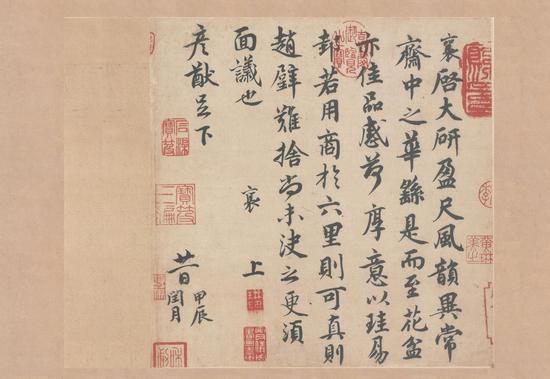 襄啓大研盈尺風韻異常
齋中之華繇是而至花盆
亦佳品感荷厚意以珪易
邽若用商於六里則可真則
趙璧難捨尚未決之更須
面議也
襄上
彥猷足下
廿一日
甲辰閏月